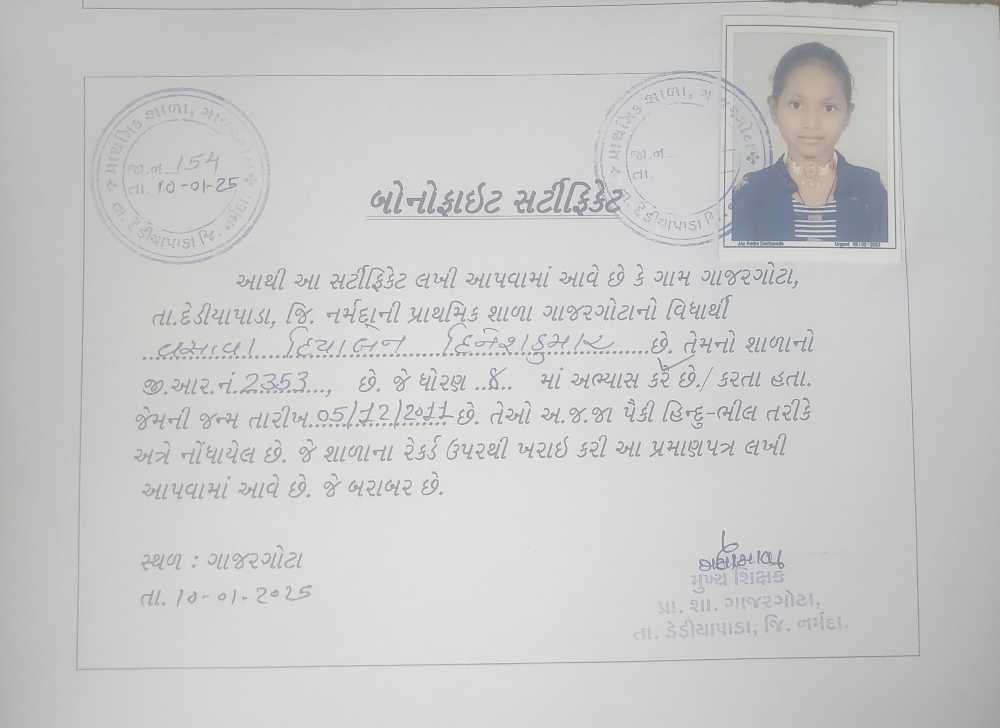 પ્રાથમિક શાળા, ગા
જા.ન. 154
તા. 10-01-25
તા. દેડીયાપાડા જિ. નર્મદા.
પ્રાથમિક શાળા, ગ
જા.ન.
તા.
તા. દેડીયાપાડા જિ.
બોનોફાઇટ સર્ટીફિકેટ
આથી આ સર્ટીફિકેટ લખી આપવામાં આવે છે કે ગામ ગાજરગોટા,
તા.દેડીયાપાડા, જિ. નર્મદાની પ્રાથમિક શાળા ગાજરગોટાનો વિધાર્થી
વસાવા દિયાબેન દિનેશકુમાર છે. તેમનો શાળાનો
જી.આર.નં. 2353, છે. જે ધોરણ 8 માં અભ્યાસ કરે છે./ કરતા હતા.
જેમની જન્મ તારીખ 05/12/2011 છે. તેઓ અ.જ.જા પૈકી હિન્દુ-ભીલ તરીકે
અત્રે નોંધાયેલ છે. જે શાળાના રેકર્ડ ઉપરથી ખરાઇ કરી આ પ્રમાણપત્ર લખી
આપવામાં આવે છે. જે બરાબર છે.
સ્થળ : ગાજરગોટા
તા. 10-01-2025
મુખ્ય શિક્ષક
પ્રા. શા. ગાજરગોટા,
તા. ડેડીયાપાડા, જિ. નર્મદા.